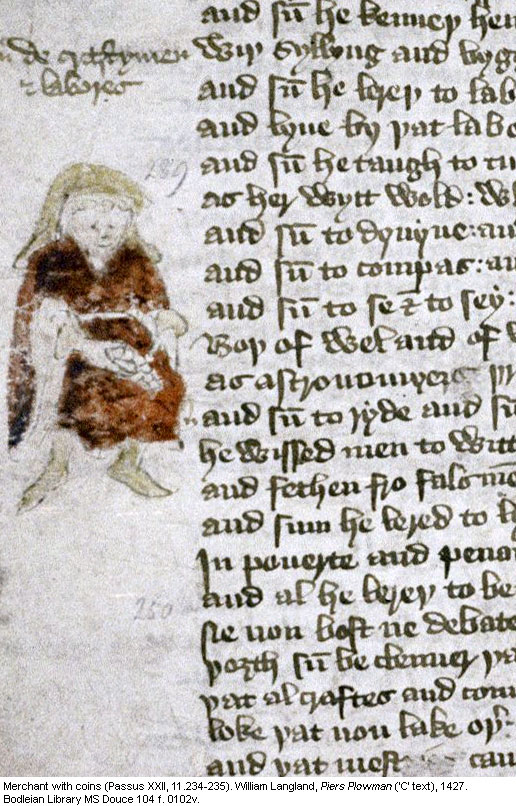 de craftymen
& labores
and sū he kenney hem
Wiþ syllyng and byg
and sū he lerey to lab
and lyue by yat labo
289
and sū he taugh to ti
as her wytt wold: w
and sū to dyuyne: an
and sū to compas: an
and sū to se & to sey:
Boy of wel and of w
as astronomyers
and sū to ryde and sū
he wissed men to witt
and fethen fro fals mē
and sum he lered to l
In pouerte and pena
and al he lerey to be
250
sie non bost ne debate
yat al craftes and
loke yat non lake oy:
and yat most cau
Merchant with coins (Passus XXII, 11.234-235). William Langland, Piers Plowman ('C' text), 1427.
Bodleian Library MS Douce 104 f. 0102v.